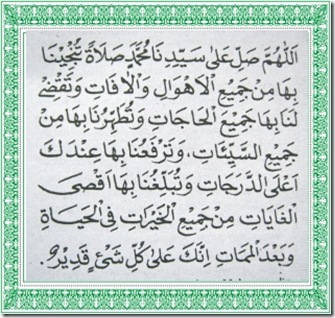 اَللّٰهُمَّ صَلِّ عَلٰى سَيِّدِنَا مُحَمَّدٍ صَلَاةً تُنْجِيْنَا
بِهَا مِنْ جَمِيْعِ الْاَهْوَالِ وَالْاٰفَاتِ وَتَقْضِيْ
لَنَا بِهَا جَمِيْعَ الْحَاجَاتِ وَتُطَهِّرُنَا بِهَا مِنْ
جَمِيْعِ السَّيِّئَاتِ، وَتَرْفَعُنَا بِهَا عِنْدَكَ
اَعْلَى الدَّرَجَاتِ وَتُبَلِّغُنَا بِهَا اَقْصَى
الْغَايَاتِ مِنْ جَمِيْعِ الْخَيْرَاتِ فِى الْحَيَاةِ
وَبَعْدَ الْمَمَاتِ اِنَّكَ عَلٰى كُلِّ شَيْءٍ قَدِيْرٌ.